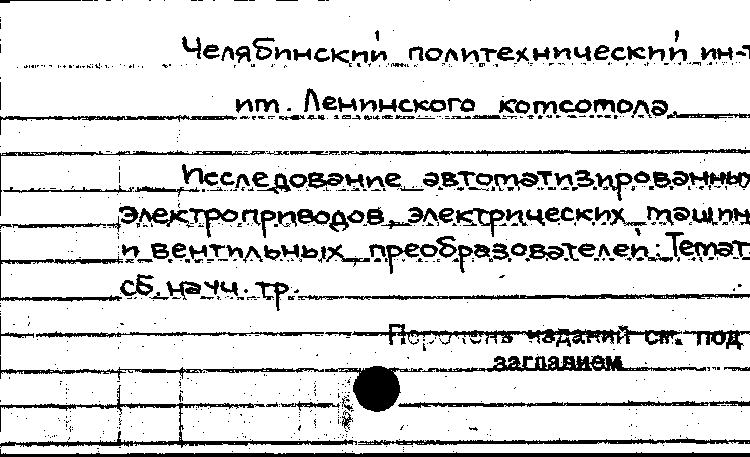 Челябинский политехнический ин-т
им. Ленинского комсомола.
Исследование автоматизированных
электроприводов, электрических машин
и вентильных преобразователей: Темат.
сб. науч. тр.
Перечень изданий см. под
заглавием